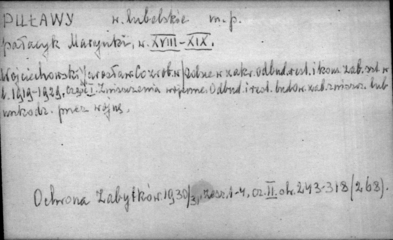 PUŁAWY w. lubelskie m.p.
pałacyk Marynki, w. XVIII-XIX.
Wojciechowski Jarosław Co zrob. w Polsce w zakr. odbud. rest. i kons. zab. szt. w
l. 1919-1929. część I. Zniszczenia wojenne. Odbud. i rest. budow. zab. zniszcz. lub
uszkodz. przez wojnę.
Ochrona Zabytków 1930/31, zesz. 1-4, cz. II str. 243-318 (268).